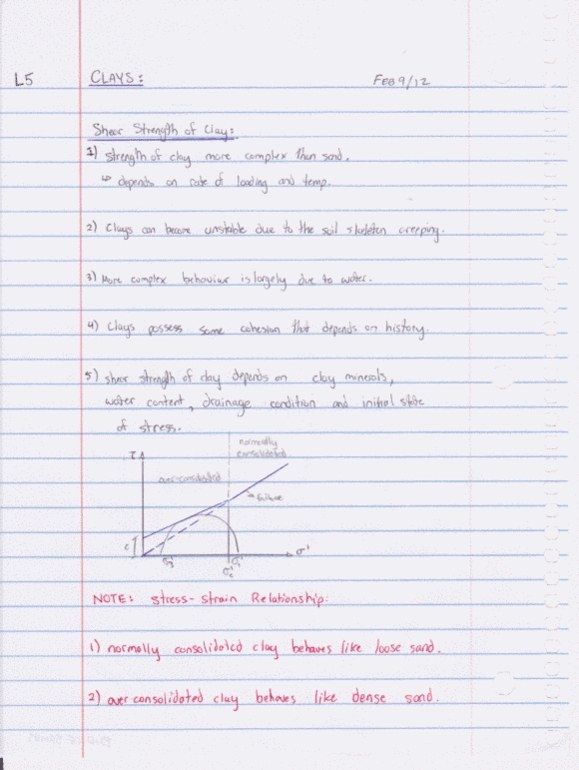 L5 CLAYS: FEB 9/12
Shear Strength of Clay:
1) strength of clay more complex than sand.
↳ depends on rate of loading and temp.
2) Clays can become unstable due to the soil skeleton creeping.
3) More complex behaviour is largely due to water.
4) Clays possess some cohesion that depends on history.
5) shear strength of clay depends on clay minerals,
water content, drainage condition and initial state
of stress.
normally
consolidated
τ
over-consolidated
failure
c
σ'
σ'c
NOTE: stress-strain Relationship:
1) normally consolidated clay behaves like loose sand.
2) over consolidated clay behaves like dense sand.